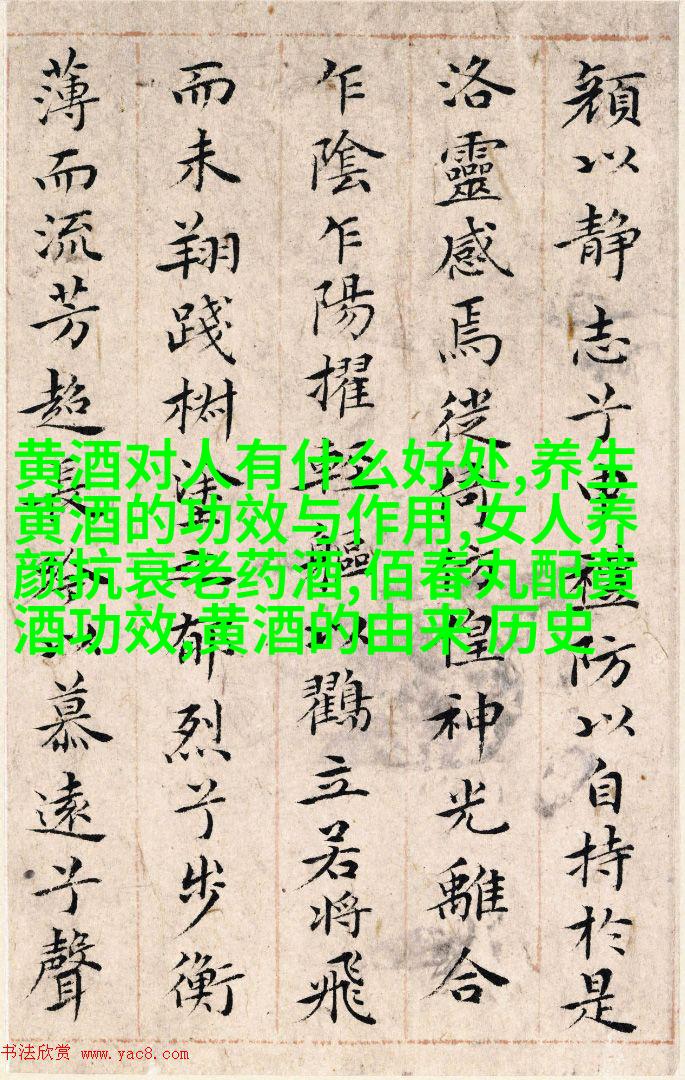 顔以静志兮申禮防以自持於是
洛靈感焉徙倚彷徨神光離合
乍陰乍陽擢輕軀以鸛立若將飛
而未翔踐椒塗之郁烈兮步衡
薄而流芳超長吟以慕遠兮聲
黄酒对人有什么好处,养生
黄酒的功效与作用,女人养
颜抗衰老药酒,佰春丸配黄
酒功效,黄酒的由来 历史
书法欣赏 www.yac8.com